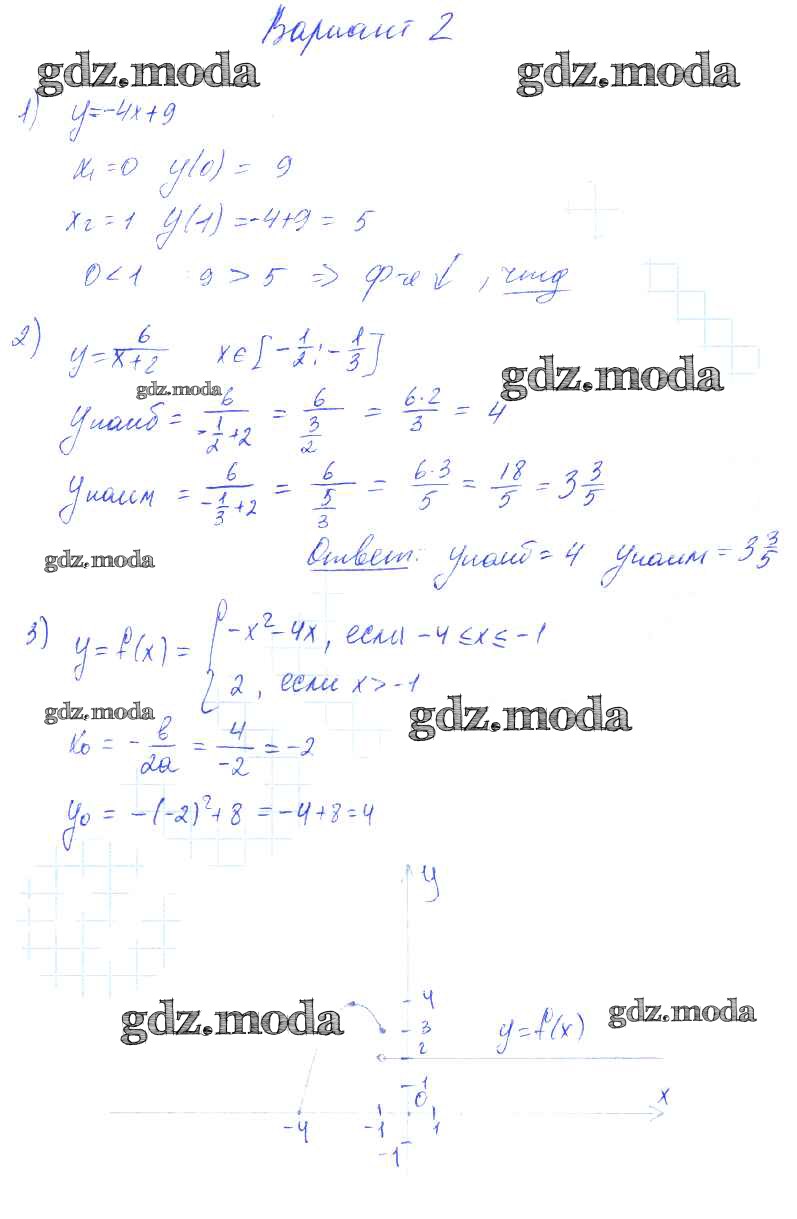 Вариант 2
gdz.moda gdz.moda
1) y=-4x+9
x₁=0 y(0) = 9
x₂=1 y(1)=-4+9=5
0<1 9>5 ⇒ ф-я ↓, чтд
2) y=6/(x+2) x∈[-1/2; -1/3]
gdz.moda gdz.moda
yнаиб = 6/(-1/2+2) = 6/(3/2) = (6·2)/3 = 4
yнаим = 6/(-1/3+2) = 6/(5/3) = (6·3)/5 = 18/5 = 3 3/5
gdz.moda Ответ: yнаиб=4 yнаим=3 3/5
3) y=f(x)= { -x²-4x, если -4≤x≤-1
2, если x>-1
gdz.moda gdz.moda
x₀ = -в/2a = 4/-2 = -2
y₀ = -(-2)²+8 = -4+8=4
y
4
gdz.moda 3 y=f(x) gdz.moda
2
1
0 x
-4 -1 1
-1